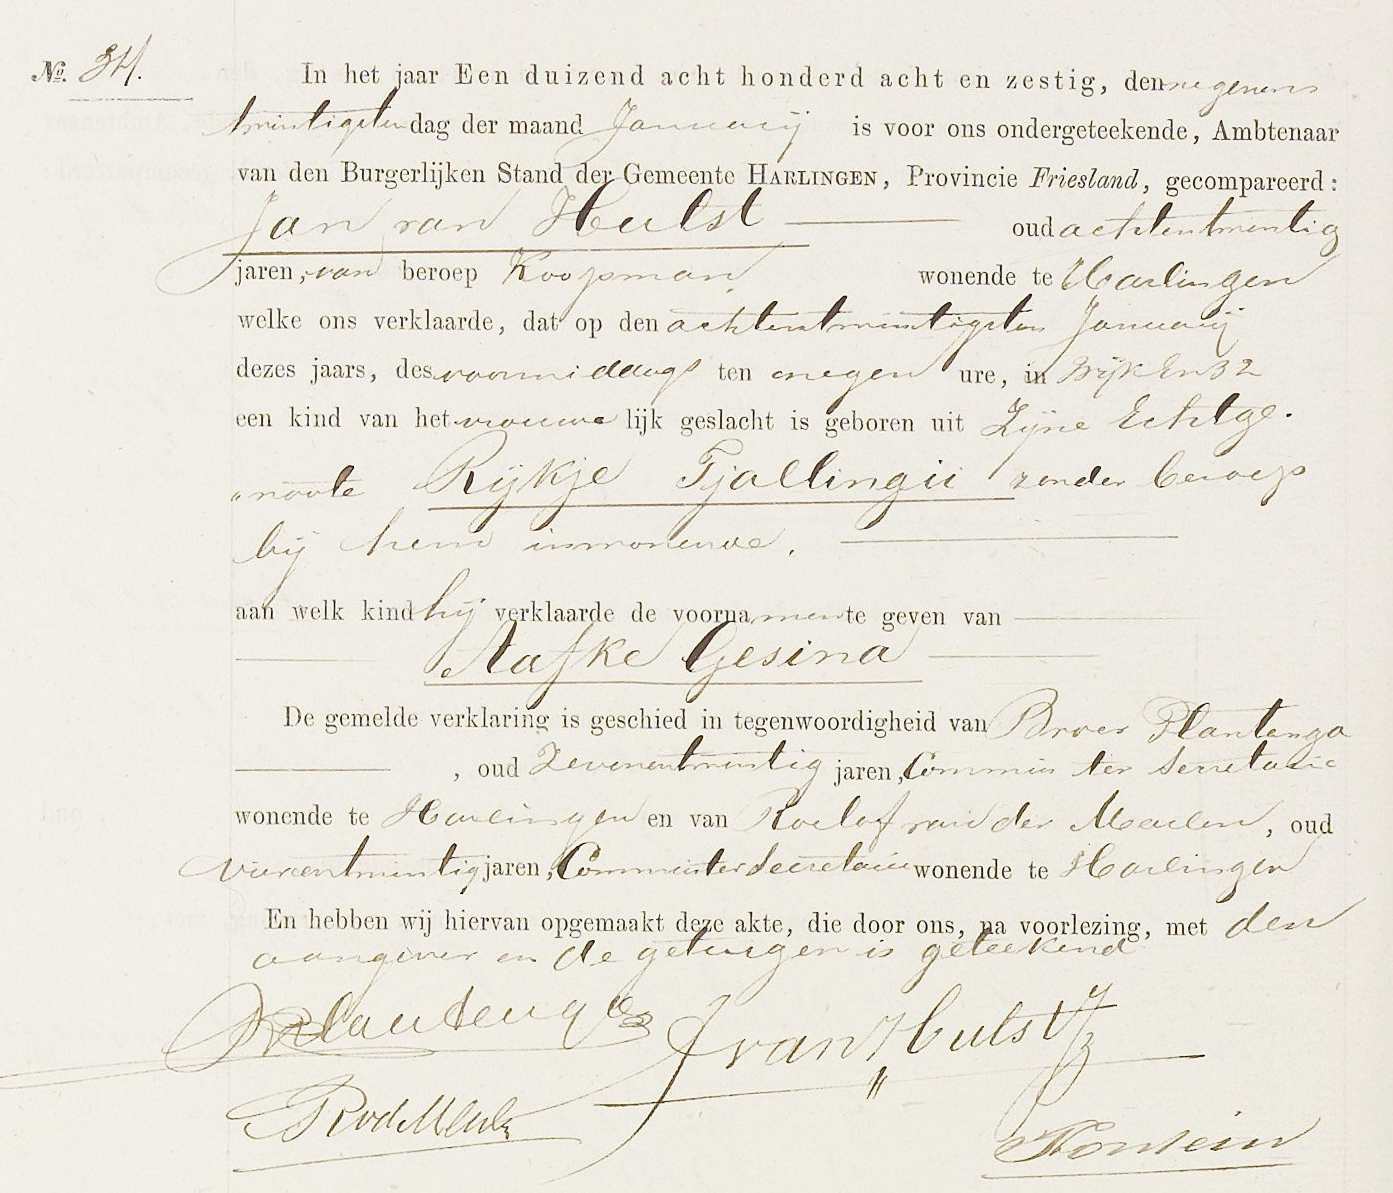 No. 34. In het jaar Een duizend acht honderd acht en zestig, den negenen
twintigsten dag der maand Januarij is voor ons ondergeteekende, Ambtenaar
van den Burgerlijken Stand der Gemeente HARLINGEN, Provincie Friesland, gecompareerd:
Jan van Hulst oud achtentwintig
jaren, van beroep Koopman, wonende te Harlingen
welke ons verklaarde, dat op den achtentwintigsten Januarij
dezes jaars, des voormiddags ten negen ure, in Wijk E n 32
een kind van het vrouwelijk geslacht is geboren uit Zijne Echtge-
noote Rijkje Tjallingii zonder beroep
bij hem inwonende.
aan welk kind hij verklaarde de voornamen te geven van
Aafke Gesina
De gemelde verklaring is geschied in tegenwoordigheid van Broer Plantenga
, oud Zevenentwintig jaren, Commies ter Secretarie
wonende te Harlingen en van Roelof van der Meulen, oud
vierentwintig jaren, Commies ter Secretarie wonende te Harlingen
En hebben wij hiervan opgemaakt deze akte, die door ons, na voorlezing, met den
aangever en de getuigen is geteekend
Plantenga
J van Hulst Jz
RvdMeulen
Fontein